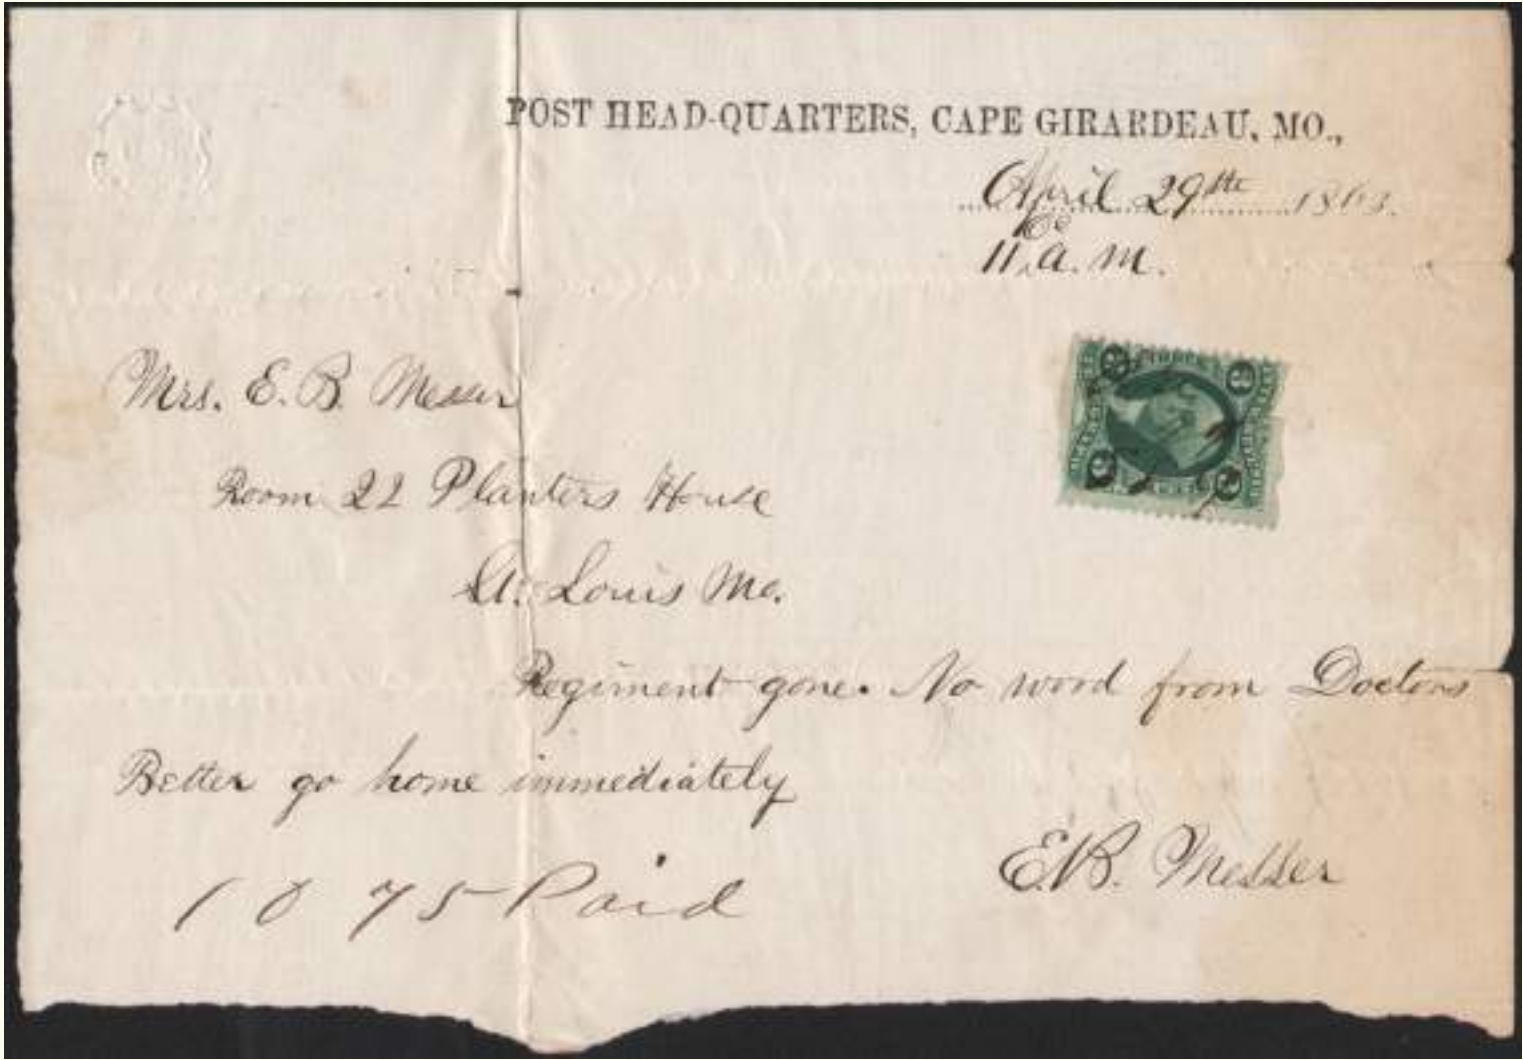 POST HEAD-QUARTERS, CAPE GIRARDEAU, MO.,
April 29th 1863.
11 a.m.
Mrs. E. B. Messer
Room 22 Planters House
St. Louis Mo.
Regiment gone. No word from Doctors
Better go home immediately
E.B. Messer
75 Paid
3 3
3 3